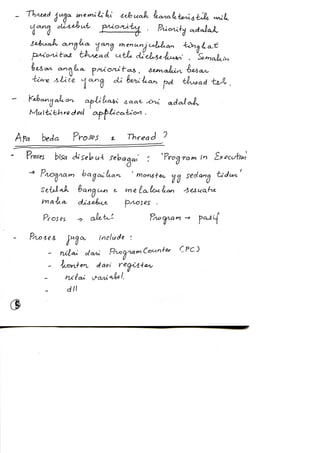 - Thread juga memiliki sebuah karakteristik unik
yang disebut priority. Priority adalah
sebuah angka yang menunjukkan tingkat
prioritas thread utk dieksekusi. Semakin
besar angka prioritas, semakin besar
time slice yang di berikan pd thread tsb.
- Kebanyakan aplikasi saat ini adalah
Multithreded application.
Apa beda Proses & Thread ?
- Proses bisa disebut sebagai : "Program in Execution"
→ Program bagaikan 'monster yg sedang tidur'
Setelah bangun & melakukan sesuatu
maka disebut proses.
Proses → aktif Program → pasif
- Proses juga include :
- nilai dari Program Counter (PC)
- konten dari register
- nilai variabel
- dll